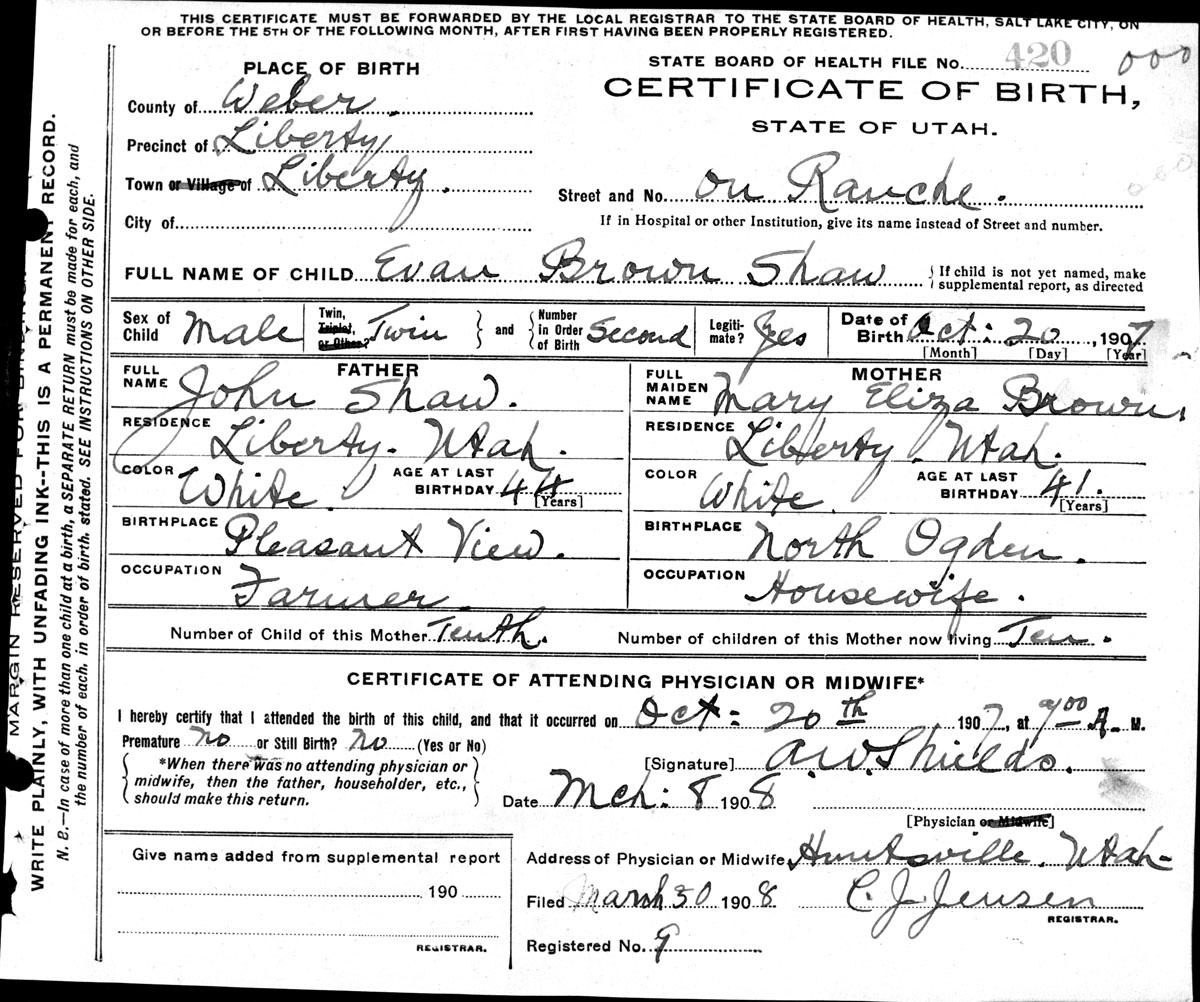 THIS CERTIFICATE MUST BE FORWARDED BY THE LOCAL REGISTRAR TO THE STATE BOARD OF HEALTH, SALT LAKE CITY, ON
OR BEFORE THE 5TH OF THE FOLLOWING MONTH, AFTER FIRST HAVING BEEN PROPERLY REGISTERED.
STATE BOARD OF HEALTH FILE No. 420 000
CERTIFICATE OF BIRTH,
STATE OF UTAH.
PLACE OF BIRTH
County of Weber.
Precinct of Liberty
Town or Village of Liberty.
Street and No. on Ranche.
City of
If in Hospital or other Institution, give its name instead of Street and number.
FULL NAME OF CHILD Evan Brown Shaw
If child is not yet named, make
supplemental report, as directed
Sex of Child Male
Twin, Triplet, or Other? Twin and Number in Order of Birth Second
Legitimate? Yes
Date of Birth Oct: 20, 1907
[Month] [Day] [Year]
FATHER
FULL NAME John Shaw.
RESIDENCE Liberty. Utah.
COLOR White. AGE AT LAST BIRTHDAY 44 [Years]
BIRTHPLACE Pleasant View.
OCCUPATION Farmer.
MOTHER
FULL MAIDEN NAME Mary Eliza Brown.
RESIDENCE Liberty. Utah.
COLOR White. AGE AT LAST BIRTHDAY 41. [Years]
BIRTHPLACE North Ogden.
OCCUPATION Housewife.
Number of Child of this Mother Tenth. Number of children of this Mother now living Ten.
CERTIFICATE OF ATTENDING PHYSICIAN OR MIDWIFE*
I hereby certify that I attended the birth of this child, and that it occurred on Oct: 20th, 1907, at A. M.
Premature no or Still Birth? no (Yes or No)
*When there was no attending physician or
midwife, then the father, householder, etc.,
should make this return.
[Signature] A.W. Shields.
Date Mch: 8 1908
[Physician or Midwife]
Give name added from supplemental report
190
REGISTRAR.
Address of Physician or Midwife Huntsville. Utah-
Filed March 30 1908 C. J. Jensen
REGISTRAR.
Registered No. 9
MARGIN RESERVED FOR BINDING
WRITE PLAINLY, WITH UNFADING INK--THIS IS A PERMANENT RECORD.
N. B.—In case of more than one child at a birth, a SEPARATE RETURN must be made for each, and
the number of each, in order of birth, stated. SEE INSTRUCTIONS ON OTHER SIDE.